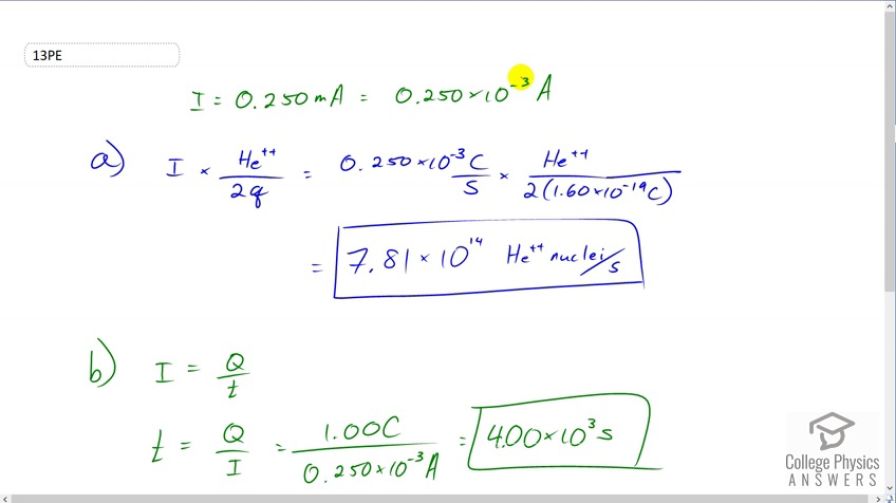 13PE
I = 0.250mA = 0.250×10⁻³ A
a) I × He⁺⁺/2q = 0.250×10⁻³ C/S × He⁺⁺/2(1.60×10⁻¹⁹C)
= 7.81×10¹⁴ He⁺⁺ nuclei/s
b) I = Q/t
t = Q/I = 1.00C/0.250×10⁻³A = 4.00×10³ s
College Physics
ANSWERS